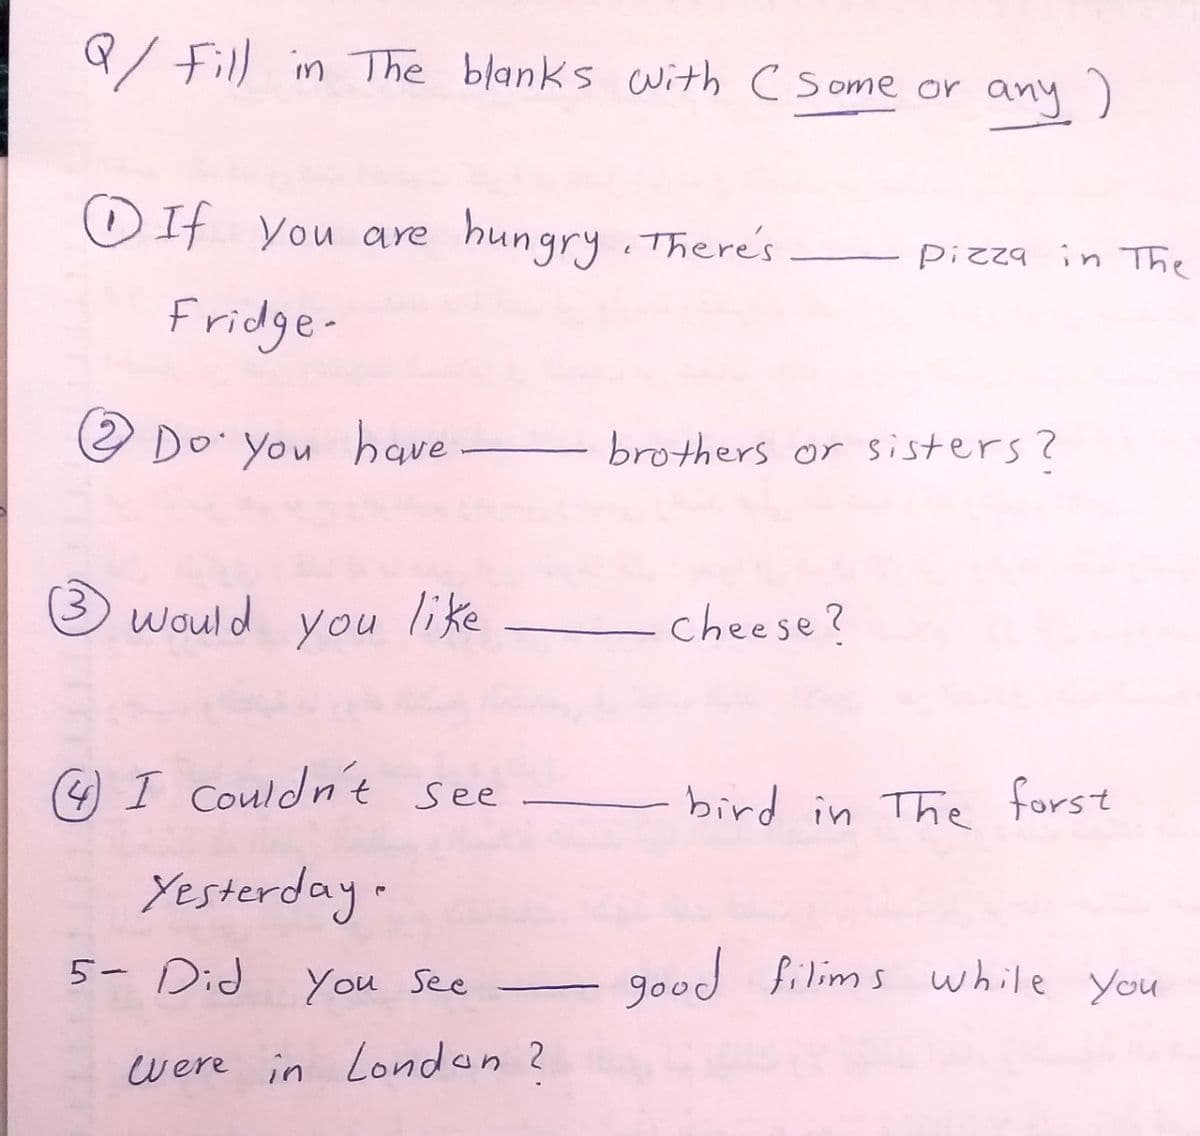 Q/ Fill in The blanks with (Some or any)
① If you are hungry. There's ____ Pizza in The
Fridge.
② Do you have ____ brothers or sisters?
③ would you like ____ cheese?
④ I couldn't see ____ bird in The forst
Yesterday.
5- Did you see ____ good filims while you
were in London?